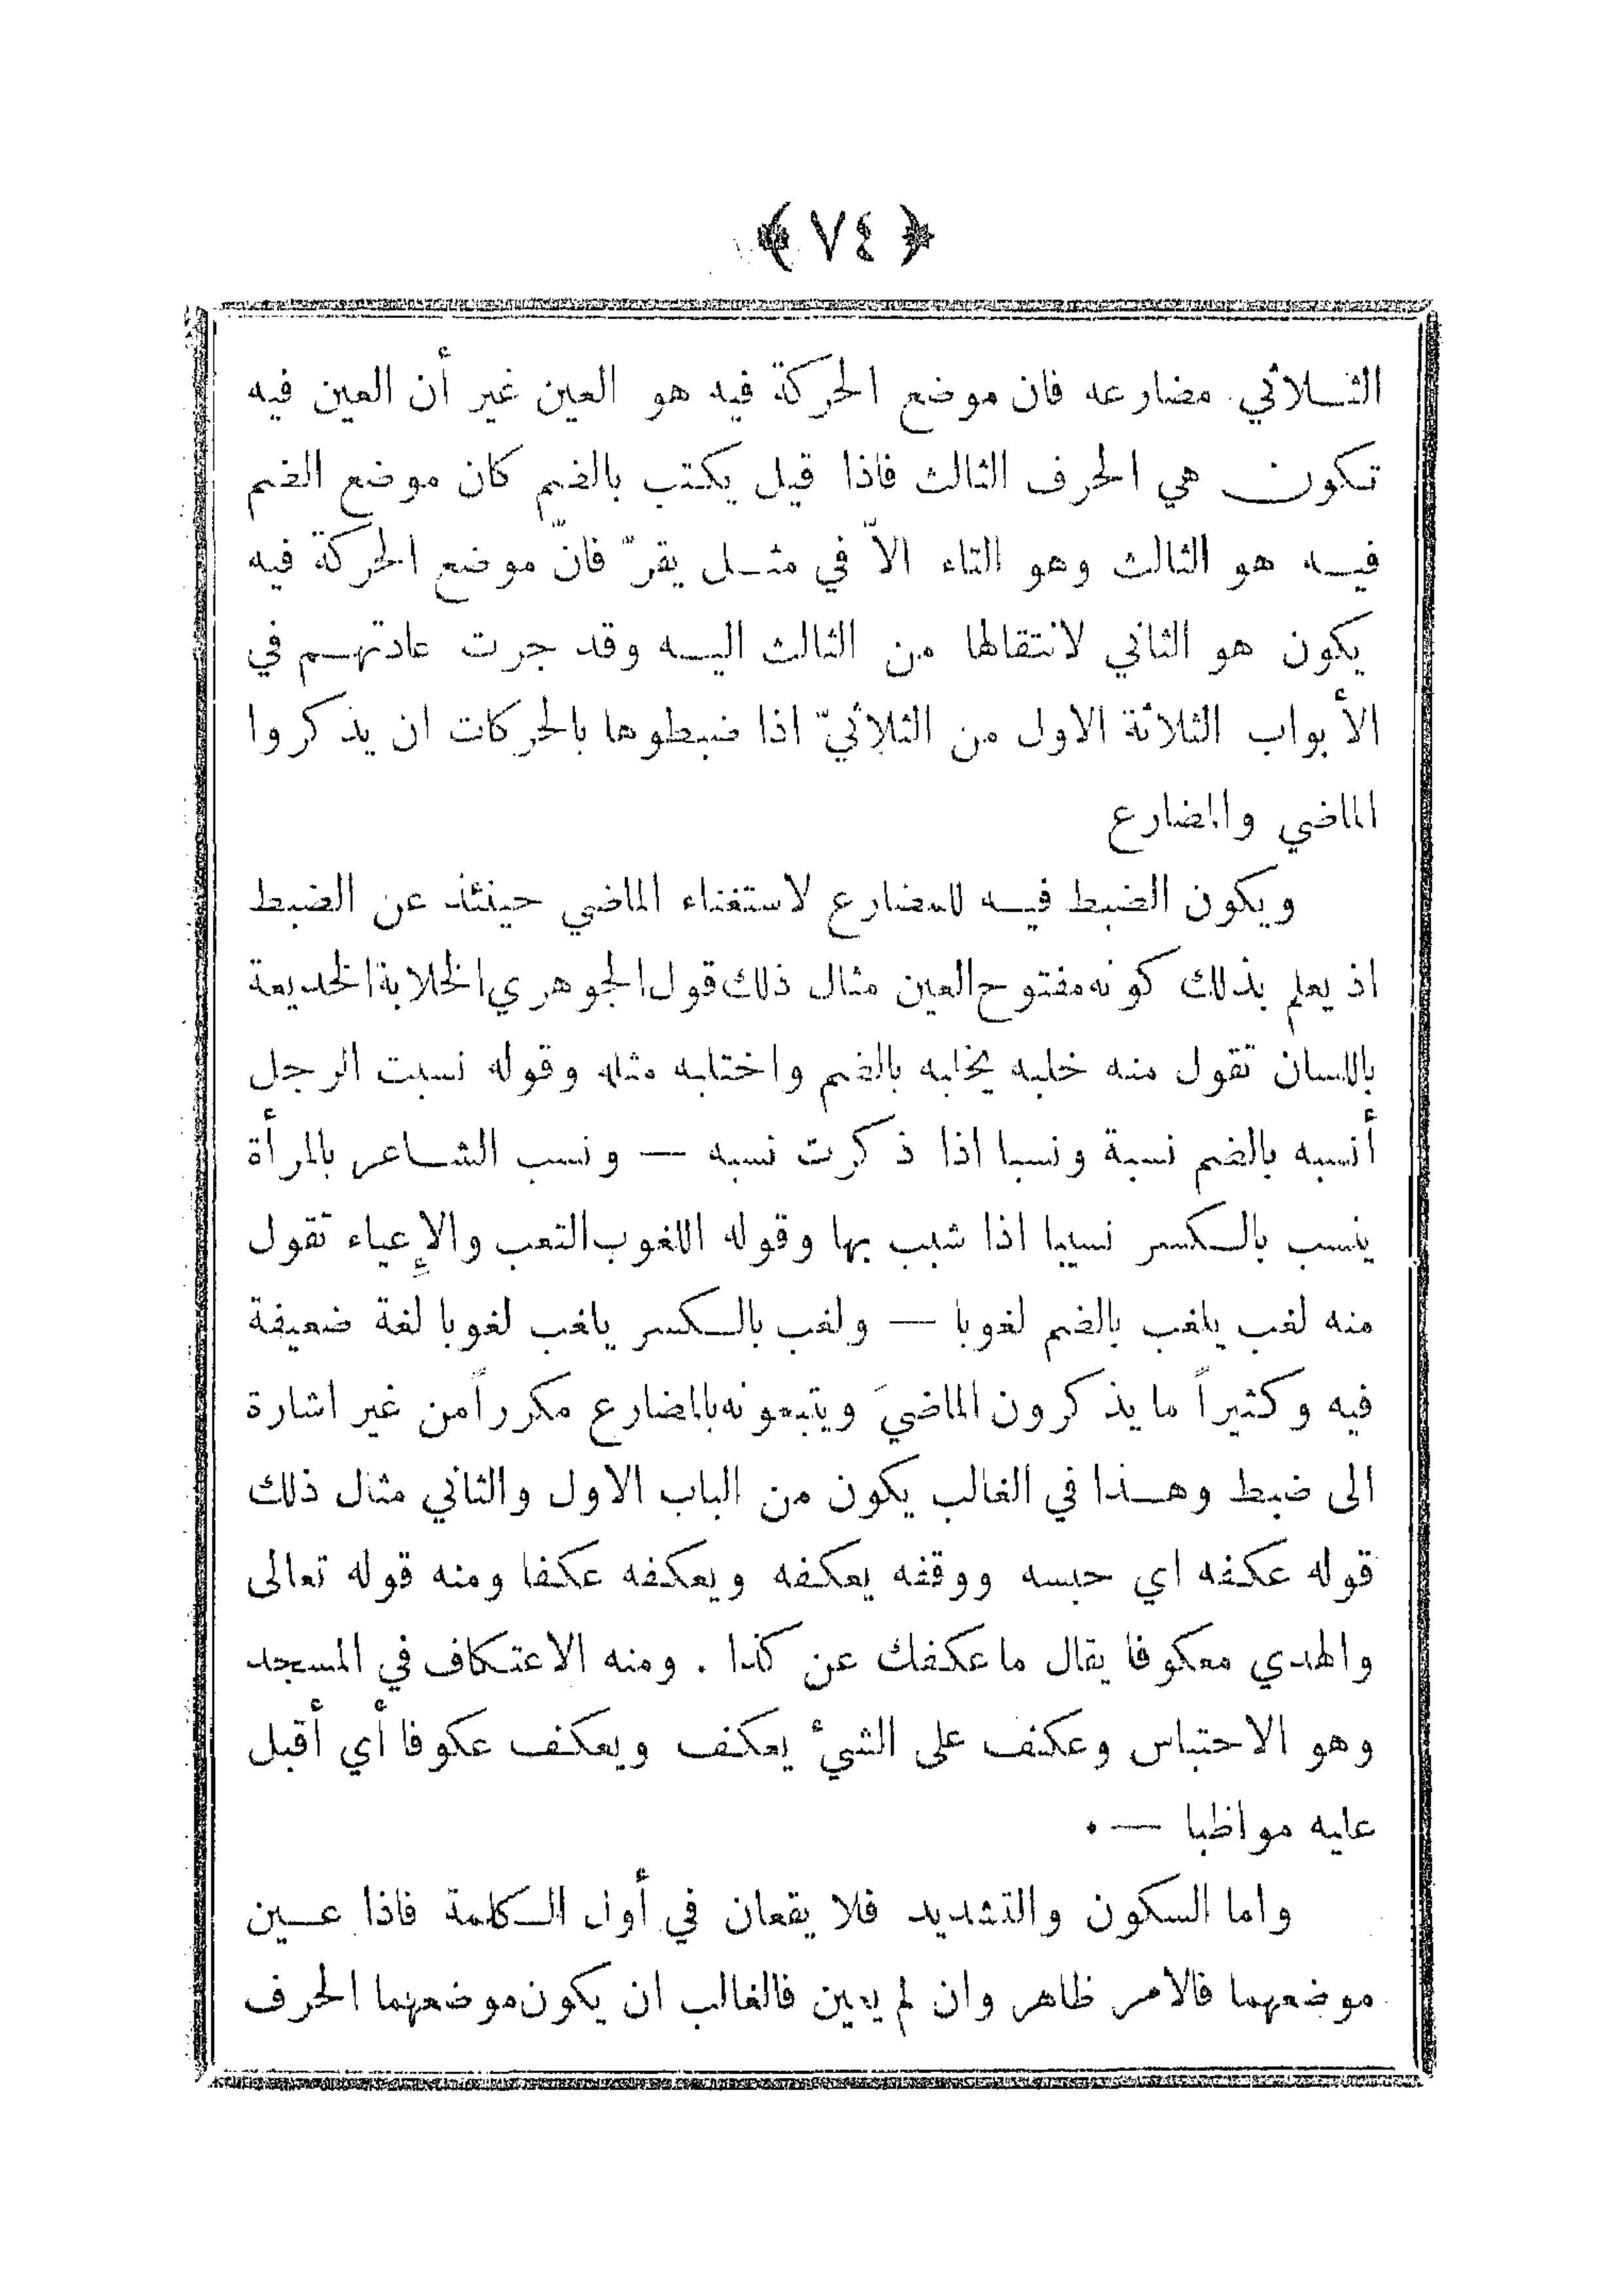 ﴿ ٧٤ ﴾
الثلاثي مضارعه فان موضع الحركة فيه هو العين غير أن العين فيه
تكون هي الحرف الثالث فاذا قيل يكتب بالضم كان موضع الضم
فيه هو الثالث وهو التاء الاّ في مثل يقرّ فانّ موضع الحركة فيه
يكون هو الثاني لانتقالها من الثالث اليه وقد جرت عادتهم في
الأبواب الثلاثة الاول من الثلاثيّ اذا ضبطوها بالحركات ان يذكروا
الماضي والمضارع
ويكون الضبط فيه للمضارع لاستغناء الماضي حينئذ عن الضبط
اذ يعلم بذلك كونه مفتوح العين مثال ذلك قول الجوهري الخلابة الخديعة
باللسان تقول منه خلبه يخلبه بالضم واختلبه مثله وقوله نسبت الرجل
أنسبه بالضم نسبة ونسبا اذا ذكرت نسبه — ونسب الشاعر بالمرأة
ينسب بالكسر نسيبا اذا شبب بها وقوله اللغوب التعب والإعياء تقول
منه لغب يلغب بالضم لغوبا — ولغب بالكسر يلغب لغوبا لغة ضعيفة
فيه وكثيراً ما يذكرون الماضيَ ويتبعونه بالمضارع مكرراً من غير اشارة
الى ضبط وهذا في الغالب يكون من الباب الاول والثاني مثال ذلك
قوله عكفه اي حبسه ووقفه يعكفه ويعكفه عكفا ومنه قوله تعالى
والهدي معكوفا يقال ما عكفك عن كذا . ومنه الاعتكاف في المسجد
وهو الاحتباس وعكف على الشيء يعكف ويعكف عكوفا أي أقبل
عليه مواظبا — .
واما السكون والتشديد فلا يقعان في أول الكلمة فاذا عين
موضعهما فالامر ظاهر وان لم يعين فالغالب ان يكون موضعهما الحرف